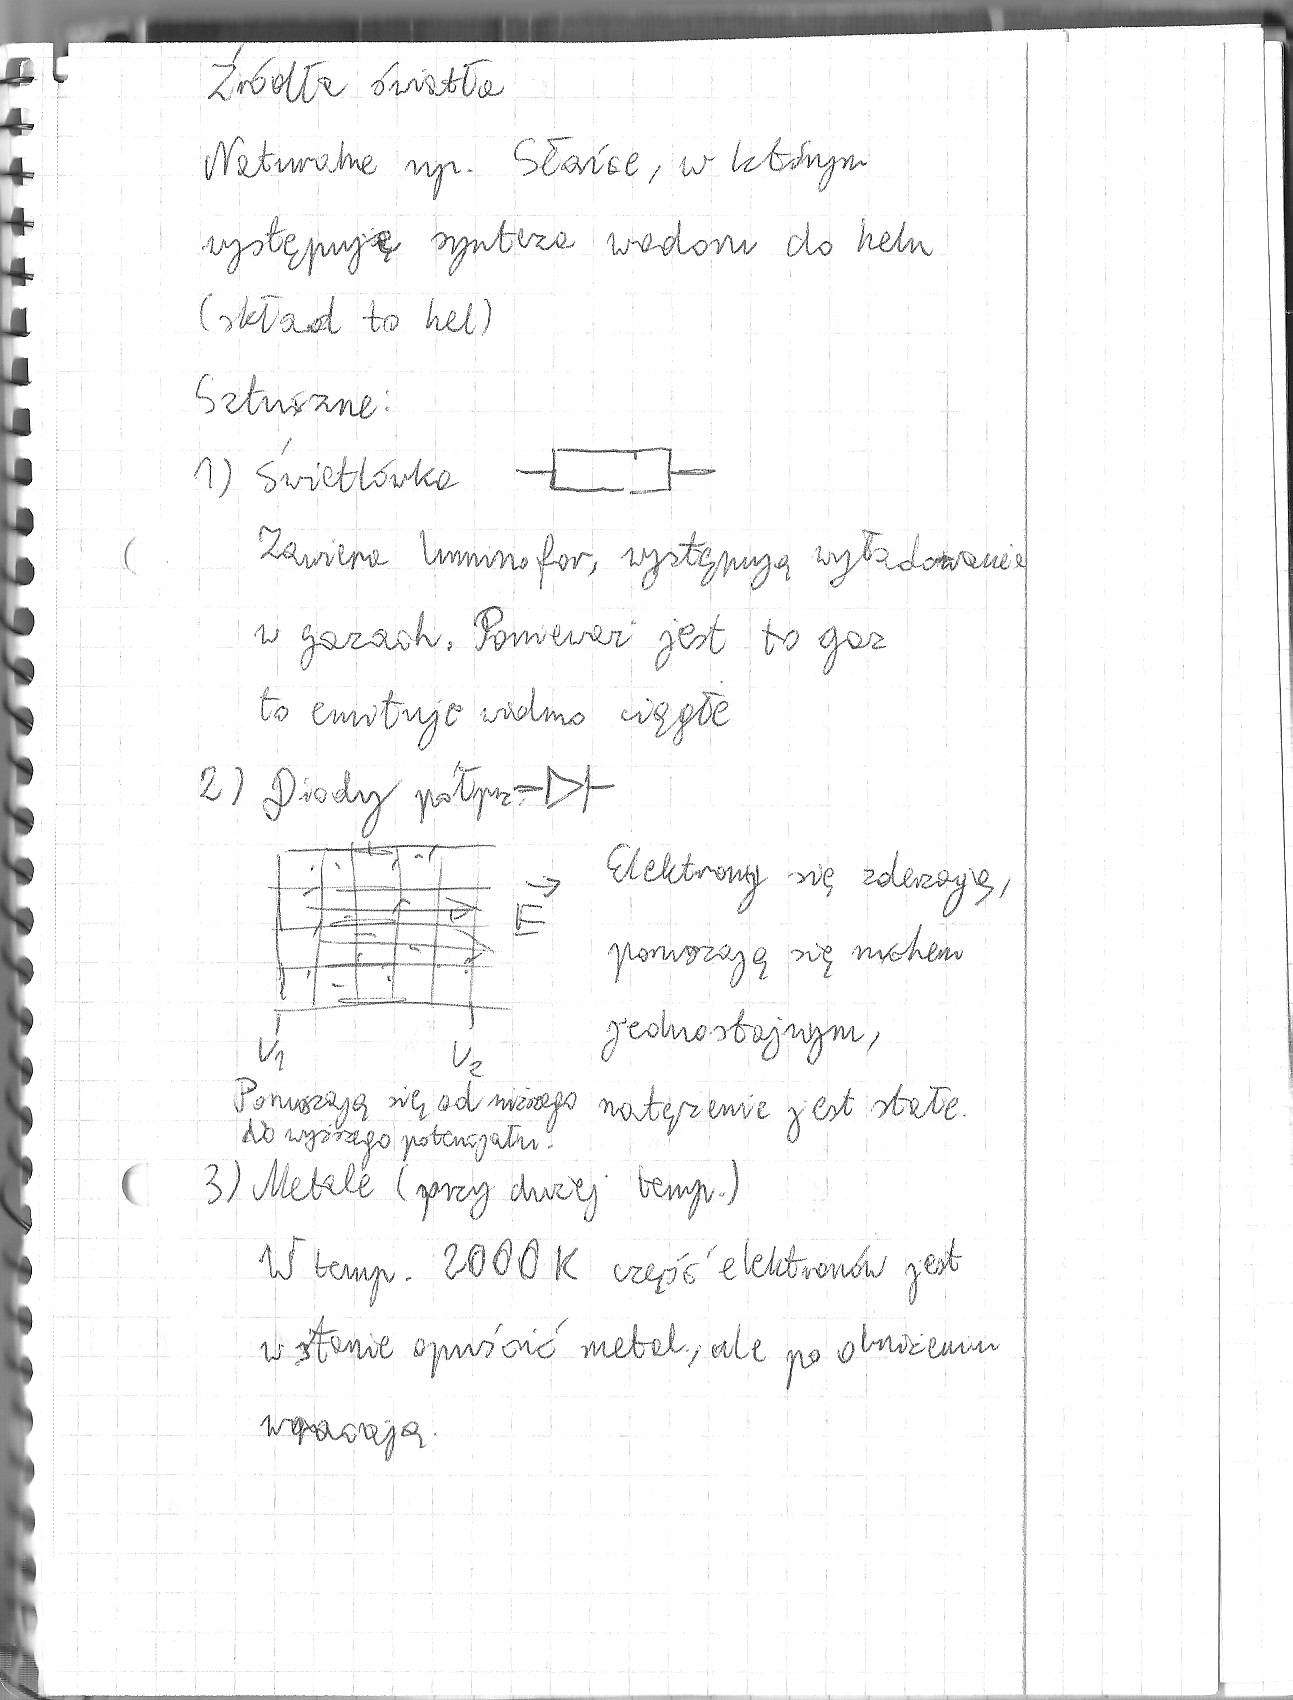 Źródła światła
Naturalne np. Słońce, w którym
występuję synteza wodoru do helu
(skład to hel)
Sztuczne:
1) Świetlówka
Zawiera luminofor, występują wyładowanie
w gazach. Ponieważ jest to gaz
to emituje widmo ciągłe
2) Diody półprz.
Elektrony się zderzają,
E
poruszają się ruchem
jednostajnym,
V1 V2
Poruszają się od niższego
natężenie jest stałe.
do wyższego potencjału.
3) Metale (przy dużej temp.)
W temp. 2000K część elektronów jest
w stanie opuścić metal, ale po obniżeniu
wracają.